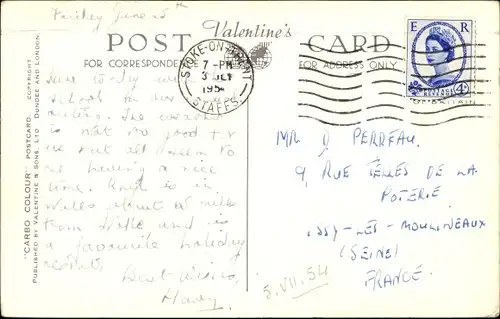 Friday June 25th
Valentine's
POST CARD
FOR CORRESPONDENCE
FOR ADDRESS ONLY
STOKE-ON-TRENT
7-PM
3 JLY
1954
STAFFS.
E R
POSTAGE
4D
"CARBO COLOUR" POSTCARD. COPYRIGHT.
PUBLISHED BY VALENTINE & SONS, LTD. DUNDEE AND LONDON.
school
outing. The weather
is not too good for
us but all seem to
be having a nice
time. is in
Wales about miles
from Stoke and is
a favourite holiday
resort.
Best Wishes,
Harry.
MR D PERREAU.
9, RUE TELLES DE LA
POTERIE
ISSY-LES-MOULINEAUX
(SEINE)
FRANCE.
5.VII.54